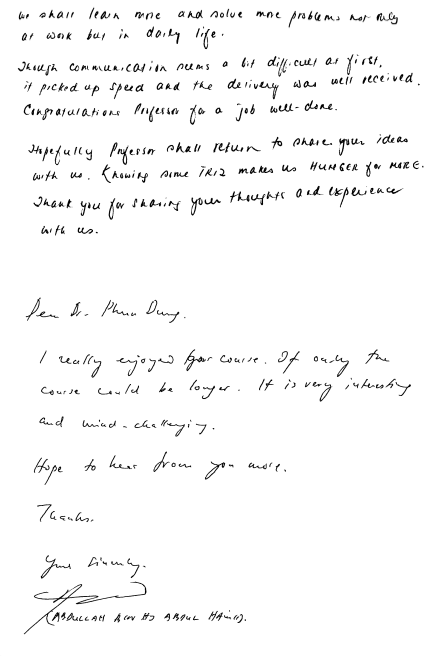 we shall learn more and solve more problems not only
at work but in daily life.
Though communication seems a bit difficult at first,
it picked up speed and the delivery was well received.
Congratulations Professor for a job well-done.
Hopefully Professor shall return to share your ideas
with us. Knowing some TRIZ makes us HUNGER for MORE.
Thank you for sharing your thoughts and experience
with us.
Dear Dr. Phan Dung.
I really enjoyed your course. If only the
course could be longer. It is very interesting
and mind-challenging.
Hope to hear from you more.
Thanks.
Yours Sincerely.
(ABDULLAH BIN HJ ABDUL HAMID).